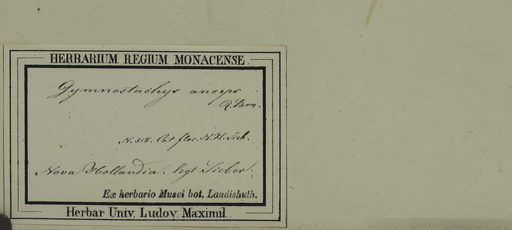 HERBARIUM REGIUM MONACENSE.
Gymnostachys anceps
R. Brn.
N. 318. Cat. flor. N. Hl. Sieb.
Nova Hollandia. legt Sieber.
Ex herbario Musei bot. Landishuth.
Herbar Univ. Ludov. Maximil.